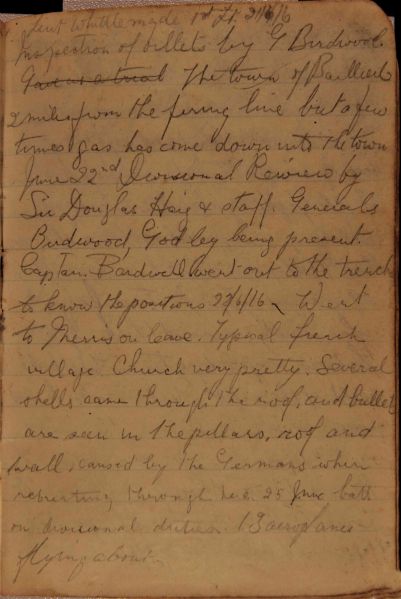 Lieut Whittle made 1st Lt. 21/6/16
Inspection of billets by G Birdwood.
Gave us a trial The town of Bailleul
2 miles from the firing line but a few
times gas has come down into the town
June 22nd Divisional Reivew by
Sir Douglas Haig & staff. Generals
Birdwood, Godley being present.
Captain Bardwell went out to the trench
to know the positions 22/6/16 Went
to Merris on leave. Typical french
village. Church very pretty. Several
shells came through the roof, and bullets
are seen in the pillars, roof and
wall, caused by the Germans when
retreating through here 25 June batt
on divisional duties. 13 aeroplanes
flying about.